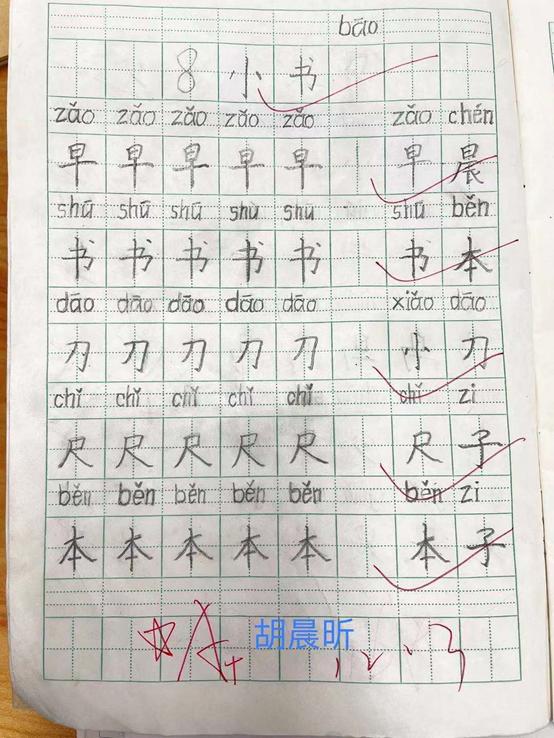 bāo
8 小 书
zǎo zǎo zǎo zǎo zǎo zǎo chén
早 早 早 早 早 早 晨
shū shū shū shū shū shū běn
书 书 书 书 书 书 本
dāo dāo dāo dāo dāo xiǎo dāo
刀 刀 刀 刀 刀 小 刀
chǐ chǐ chǐ chǐ chǐ chǐ zi
尺 尺 尺 尺 尺 尺 子
běn běn běn běn běn běn zi
本 本 本 本 本 本 子
A+ 胡晨昕